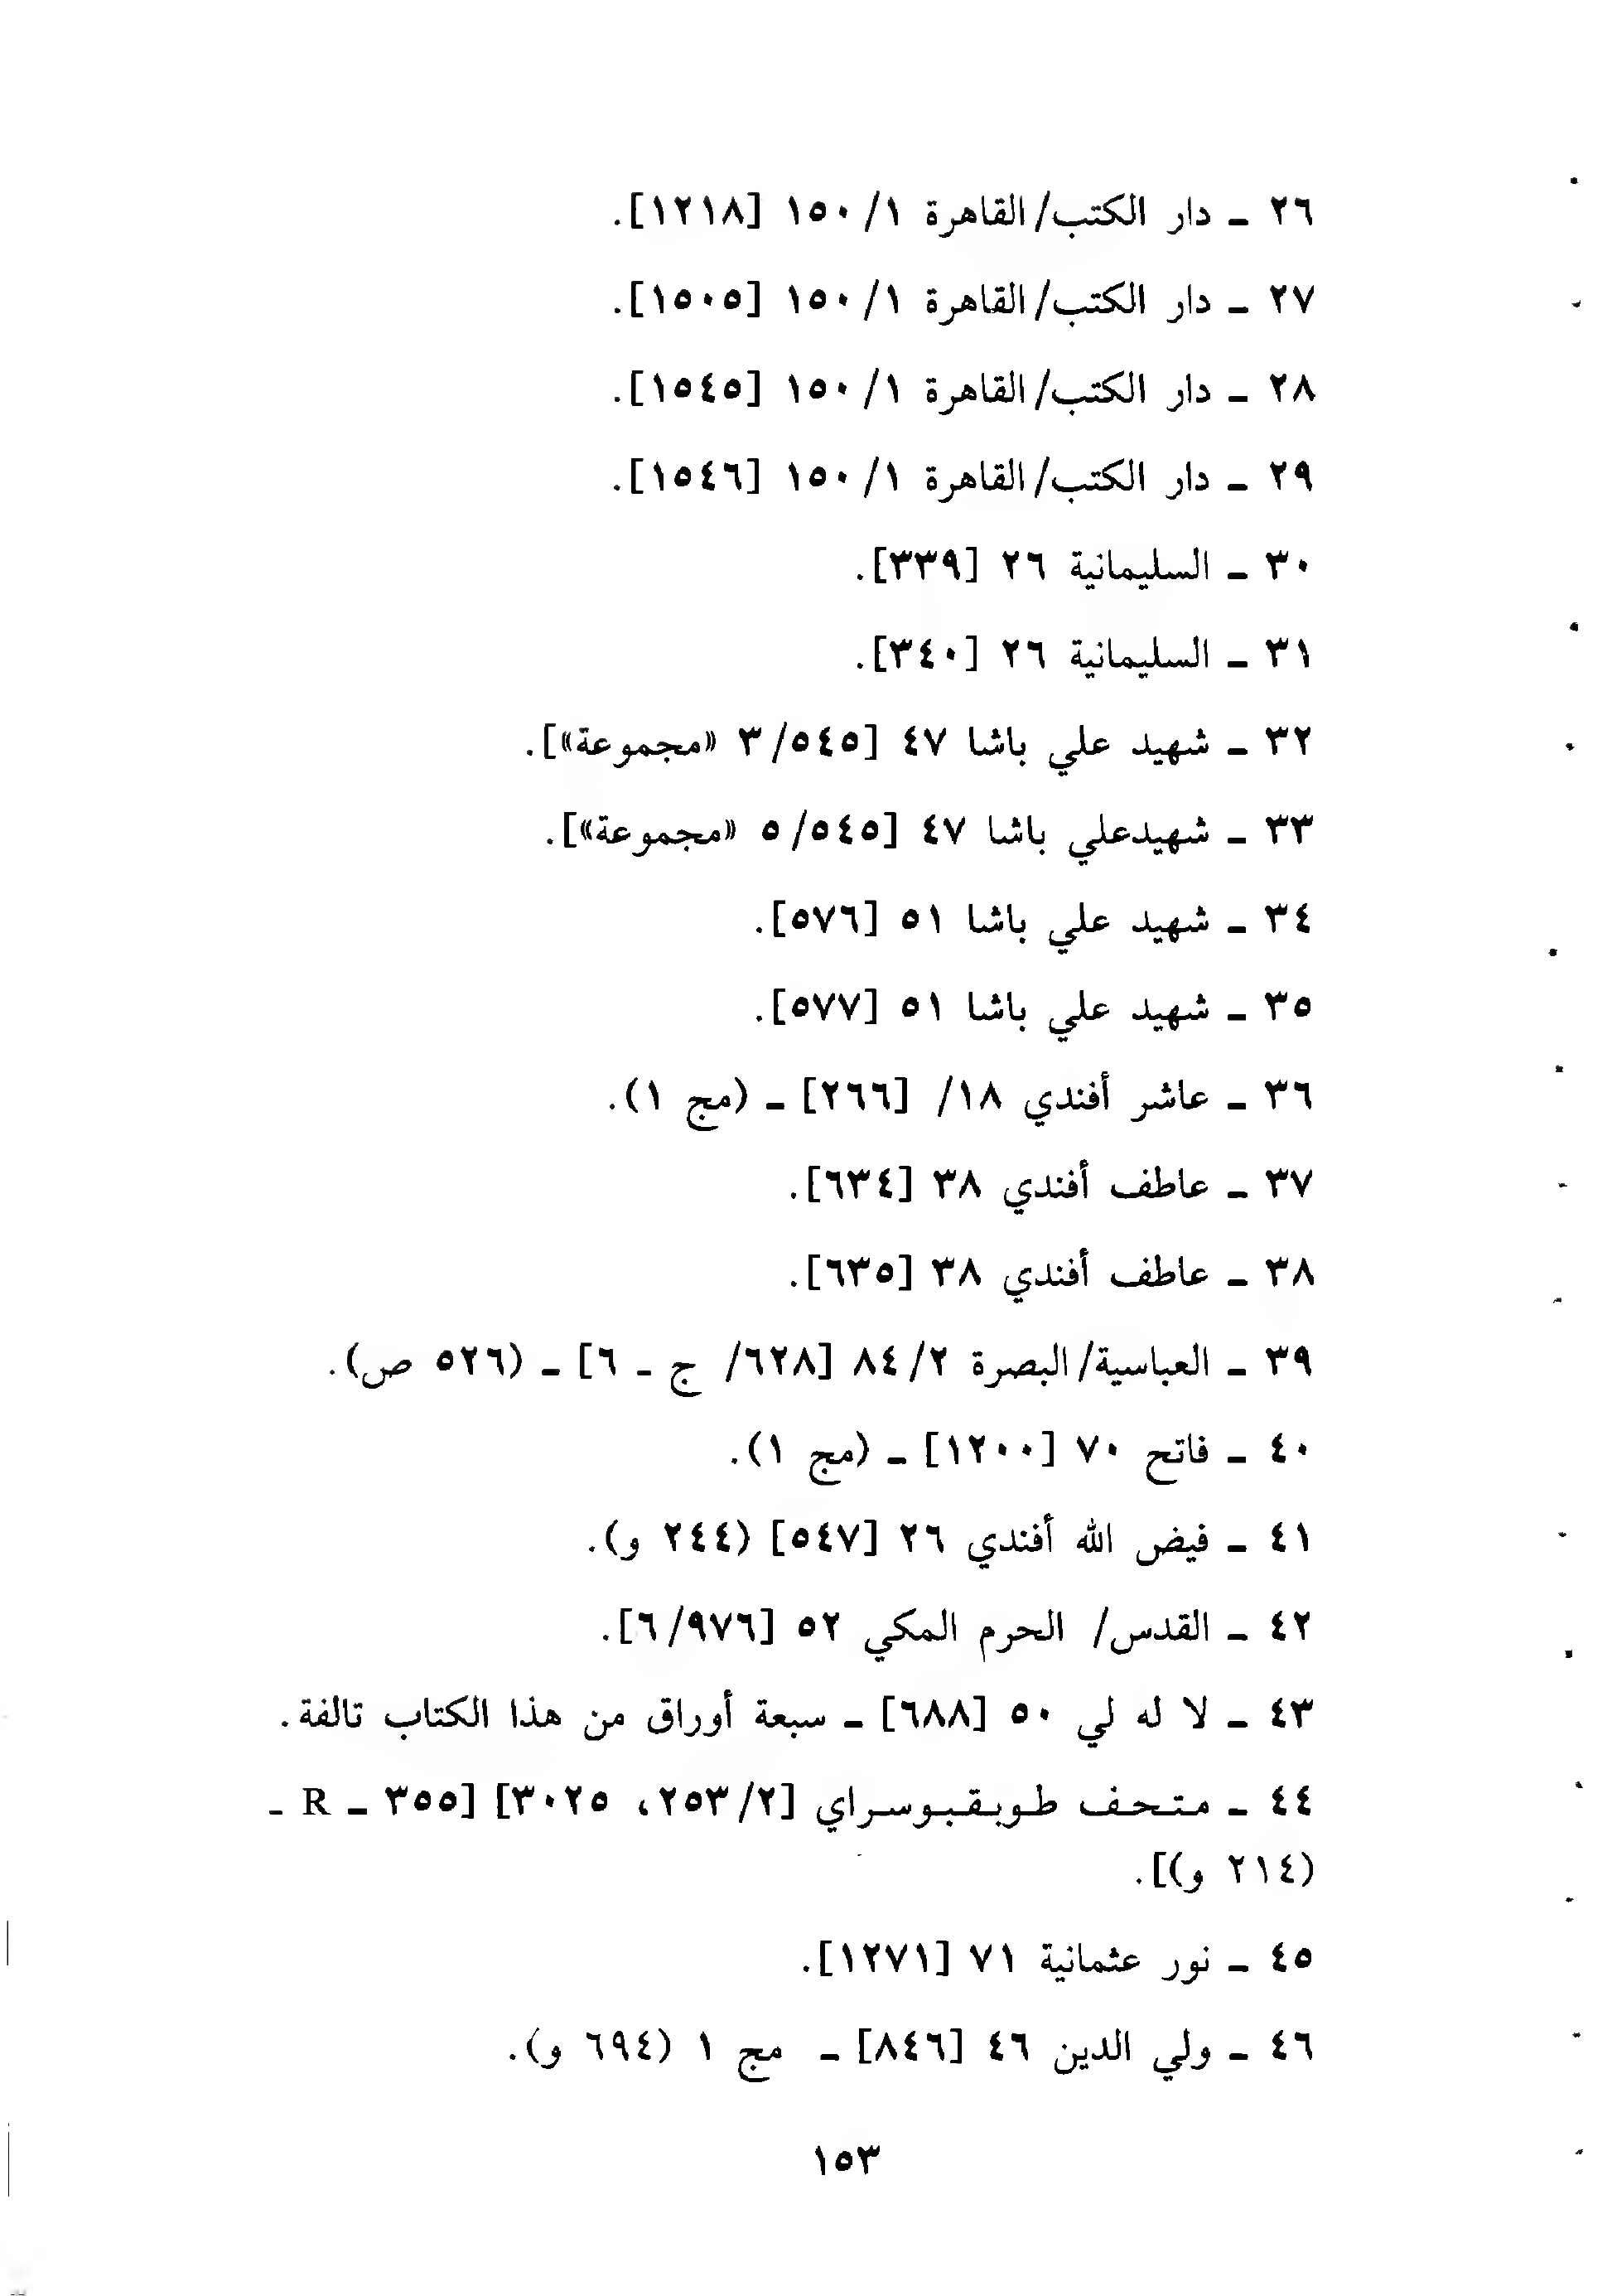 ٢٦ ـ دار الكتب/القاهرة ١/ ١٥٠ [١٢١٨].
٢٧ ـ دار الكتب/القاهرة ١/ ١٥٠ [١٥٠٥].
٢٨ ـ دار الكتب/القاهرة ١/ ١٥٠ [١٥٤٥].
٢٩ ـ دار الكتب/القاهرة ١/ ١٥٠ [١٥٤٦].
٣٠ ـ السليمانية ٢٦ [٣٣٩].
٣١ ـ السليمانية ٢٦ [٣٤٠].
٣٢ ـ شهيد علي باشا ٤٧ [٥٤٥/ ٣ «مجموعة»].
٣٣ ـ شهيدعلي باشا ٤٧ [٥٤٥/ ٥ «مجموعة»].
٣٤ ـ شهيد علي باشا ٥١ [٥٧٦].
٣٥ ـ شهيد علي باشا ٥١ [٥٧٧].
٣٦ ـ عاشر أفندي ١٨/ [٢٦٦] ـ (مج ١).
٣٧ ـ عاطف أفندي ٣٨ [٦٣٤].
٣٨ ـ عاطف أفندي ٣٨ [٦٣٥].
٣٩ ـ العباسية/البصرة ٢/ ٨٤ [٦٢٨/ ج ـ ٦] ـ (٥٢٦ ص).
٤٠ ـ فاتح ٧٠ [١٢٠٠] ـ (مج ١).
٤١ ـ فيض الله أفندي ٢٦ [٥٤٧] (٢٤٤ و).
٤٢ ـ القدس/ الحرم المكي ٥٢ [٩٧٦/ ٦].
٤٣ ـ لا له لي ٥٠ [٦٨٨] ـ سبعة أوراق من هذا الكتاب تالفة.
٤٤ ـ متحف طوبقبوسراي [٢/ ٢٥٣، ٣٠٢٥] [٣٥٥ ـ R ـ
(٢١٤ و)].
٤٥ ـ نور عثمانية ٧١ [١٢٧١].
٤٦ ـ ولي الدين ٤٦ [٨٤٦] ـ مج ١ (٦٩٤ و).
١٥٣